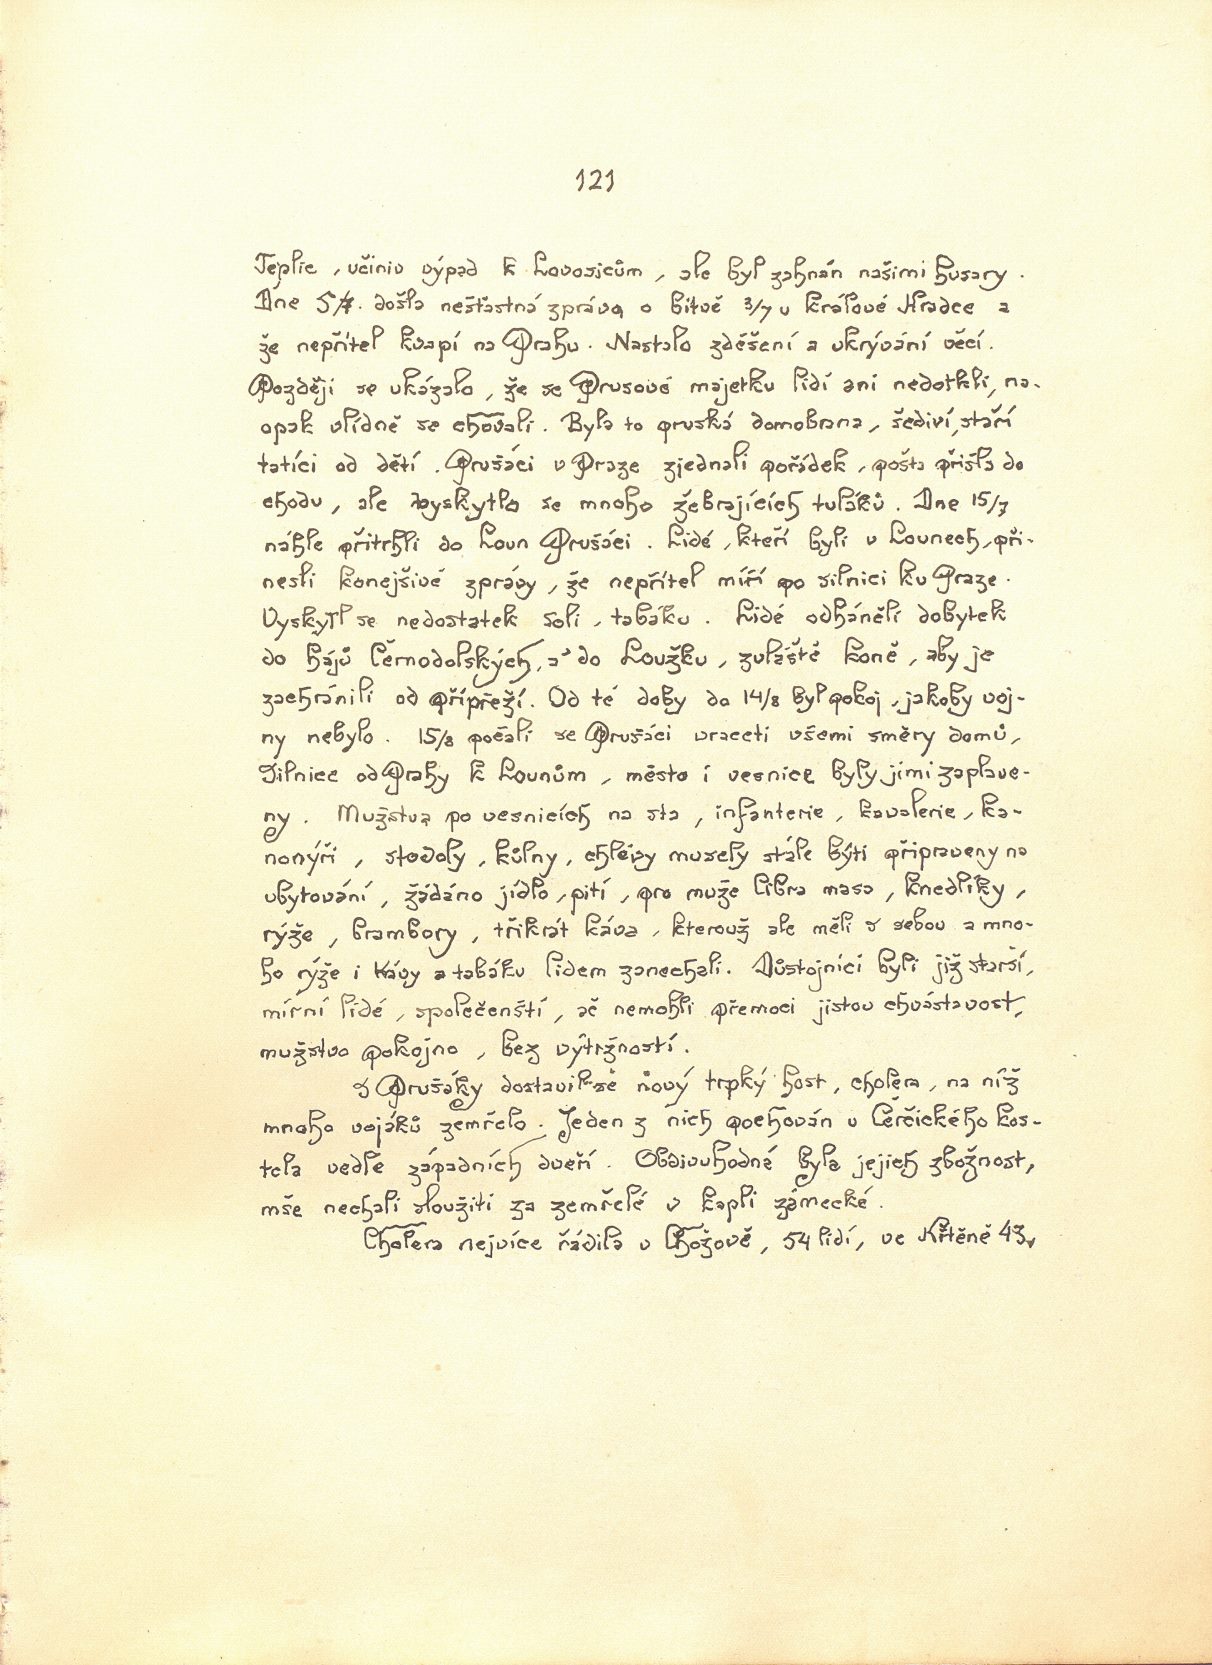 121
Teplic, učiniv výpad k Lovosicům, ale byl zahnán našimi husary.
Dne 5/7. došla nešťastná zpráva o bitvě 3/7 u Králové Hradce a
že nepřítel kvapí na Prahu. Nastalo zděšení a ukrývání věcí.
Později se ukázalo, že se Prusové majetku lidí ani nedotkli, na-
opak vlídně se chovali. Byla to pruská domobrana, šediví, staří
tatíci od dětí. Prušáci v Praze zjednali pořádek, pošta přišla do
chodu, ale vyskytlo se mnoho žebrajících tuláků. Dne 15/7
náhle přitrhli do Loun Prušáci. Lidé, kteří byli v Lounech, při-
nesli konejšivé zprávy, že nepřítel míří po silnici ku Praze.
Vyskytl se nedostatek soli, tabáku. Lidé odháněli dobytek
do hájů Černodolských, a do Loužku, zvláště koně, aby je
zachránili od přípřeží. Od té doby do 14/8 byl pokoj, jakoby voj-
ny nebylo. 15/8 počali se Prušáci vraceti všemi směry domů,
Silnice od Prahy k Lounům, město i vesnice byly jimi zaplave-
ny. Mužstva po vesnicích na sta, infanterie, kavalerie, ka-
nonýři, stodoly, kůlny, chlévy musely stále býti připraveny na
ubytování, žádáno jídlo, pití, pro muže libra masa, knedlíky,
rýže, brambory, třikrát káva, kterouž ale měli s sebou a mno-
ho rýže i kávy a tabáku lidem zanechali. Důstojníci byli již starší,
mírní lidé, společenští, ač nemohli přemoci jistou chvástavost,
mužstvo pokojno, bez výtržností.
S Prušáky dostavil se nový trpký host, cholera, na níž
mnoho vojáků zemřelo. Jeden z nich pochován u Cerčického kos-
tela vedle západních dveří. Obdivuhodné byla jejich zbožnost,
mše nechali sloužiti za zemřelé v kapli zámecké.
Cholera nejvíce řádila v Chožově, 54 lidí, ve Křtěně 43,